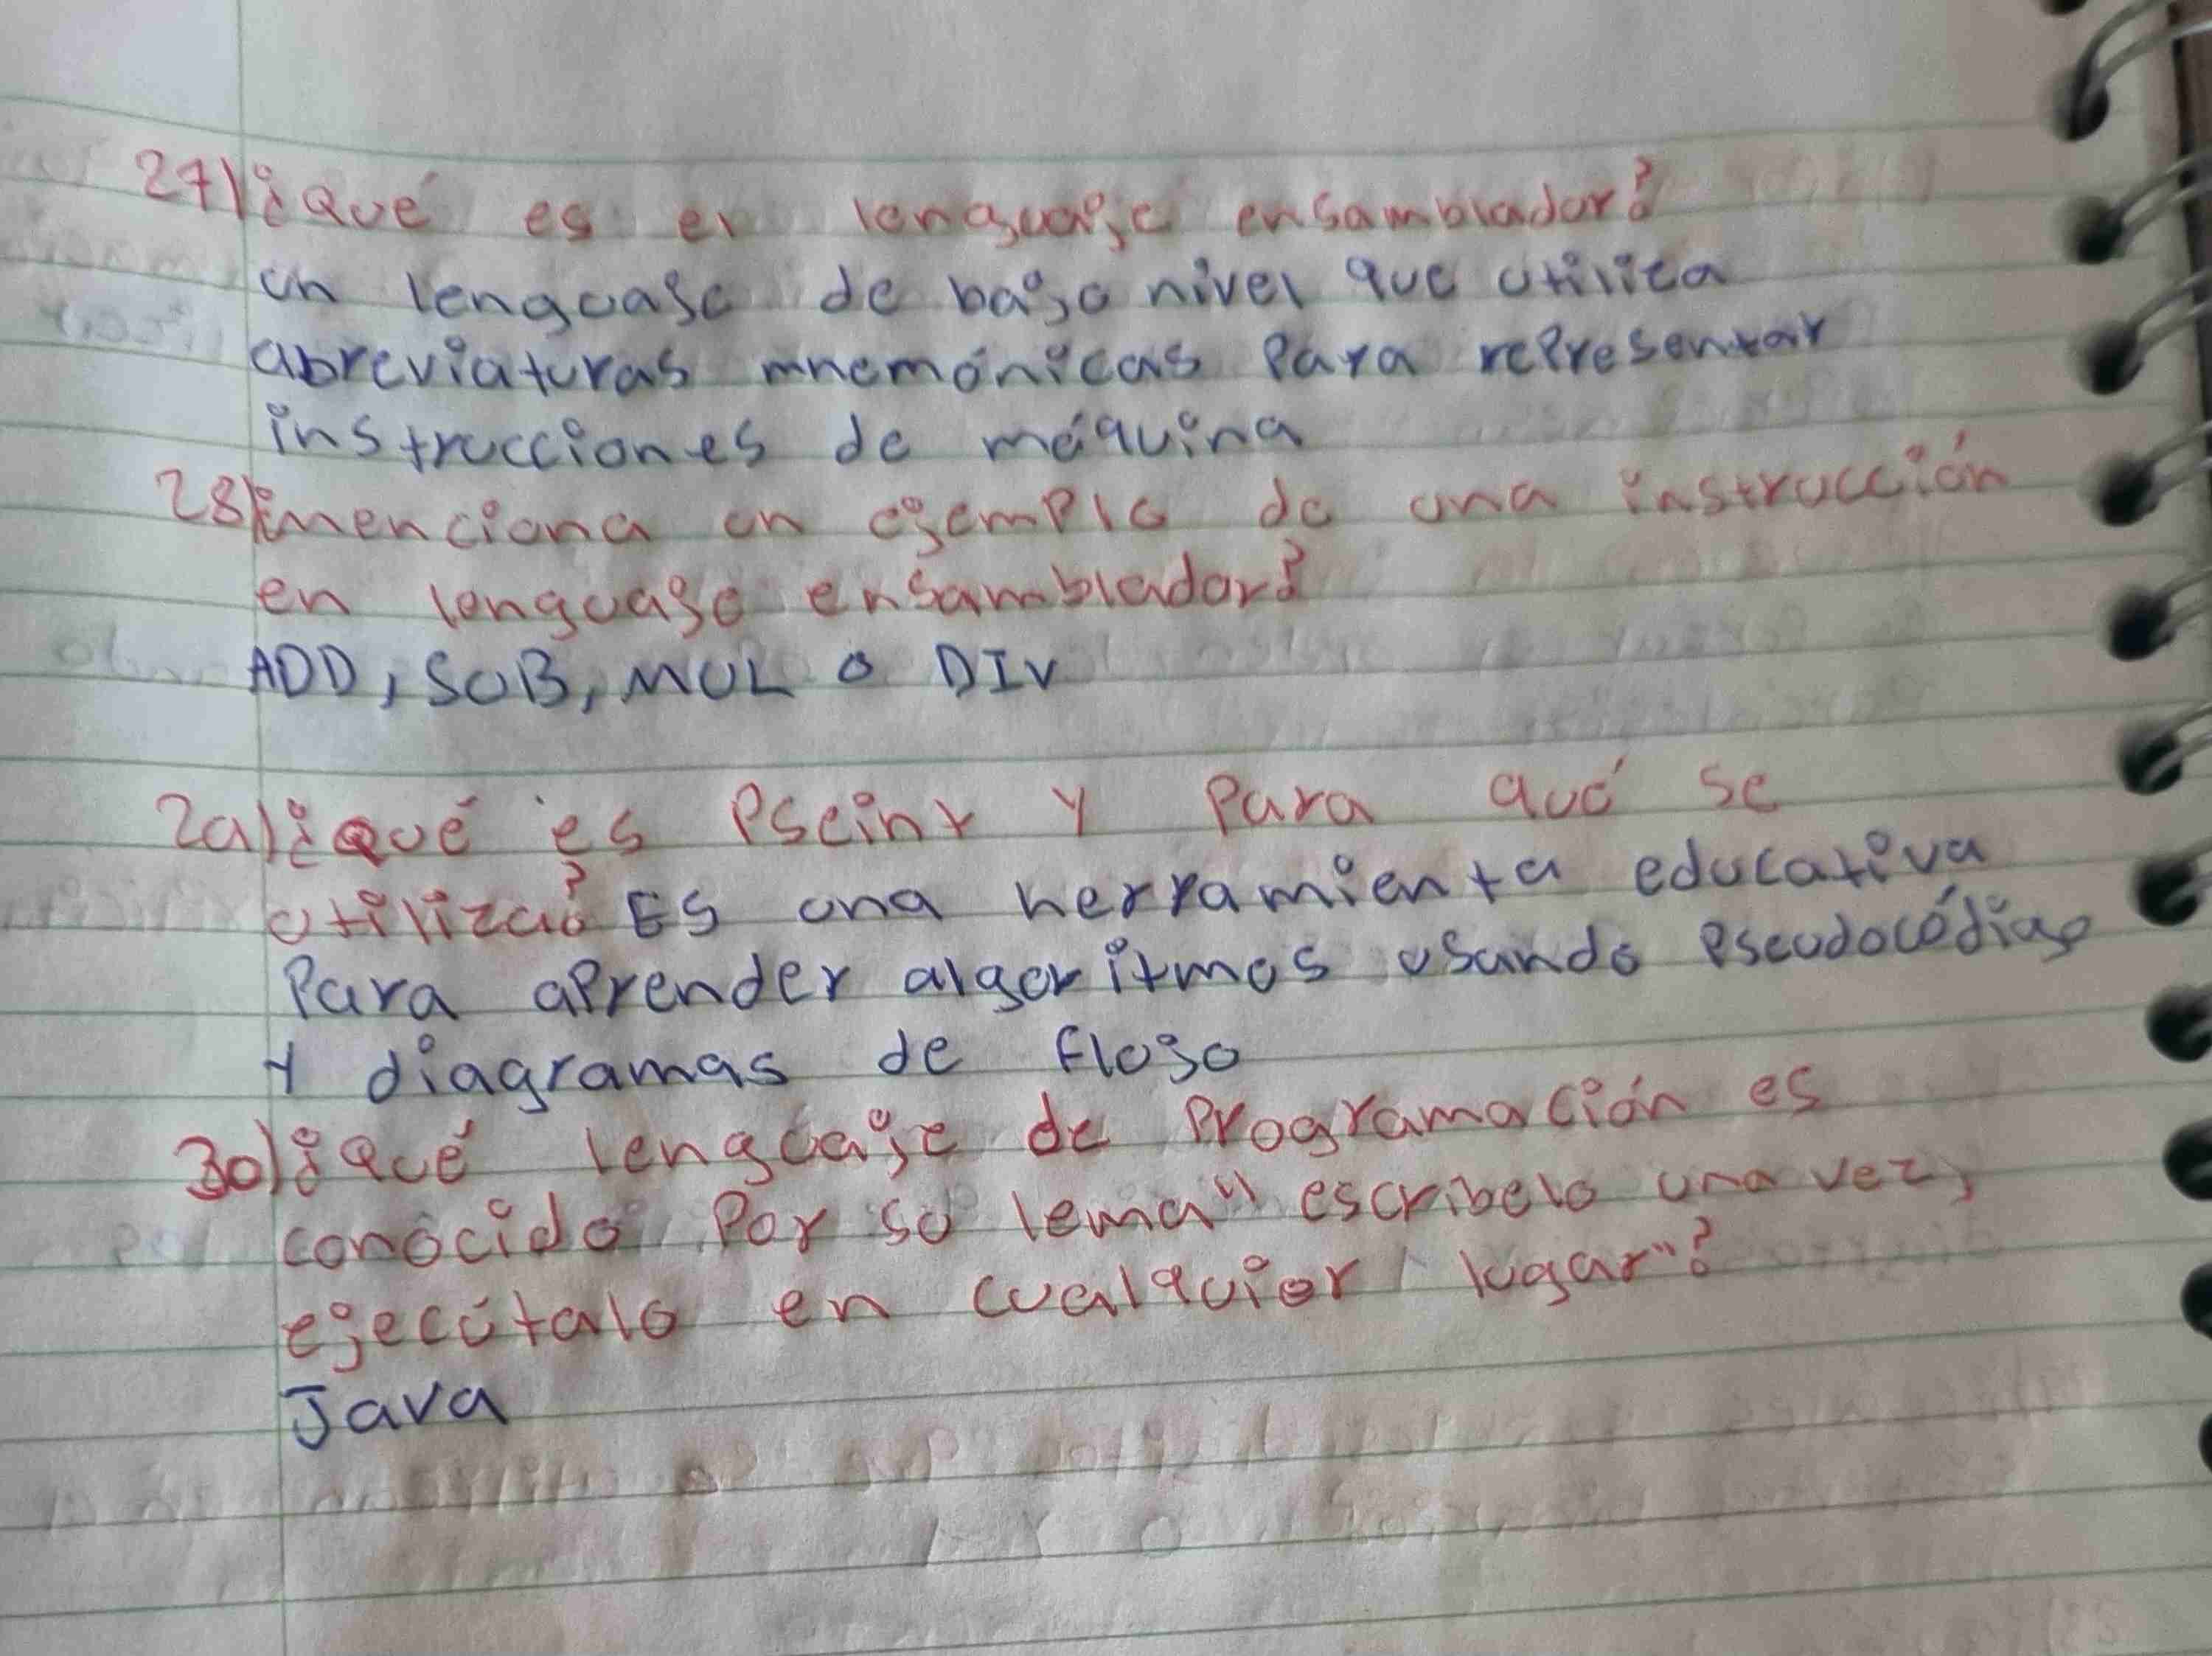 27) ¿Qué es el lenguaje ensamblador?
un lenguaje de bajo nivel que utiliza
abreviaturas mnemónicas para representar
instrucciones de máquina
28) ¿menciona un ejemplo de una instrucción
en lenguaje ensamblador?
ADD, SUB, MUL o DIV
29) ¿Qué es Pseint y para qué se
utiliza? Es una herramienta educativa
para aprender algoritmos usando pseudocódigo
y diagramas de flujo
30) ¿Qué lenguaje de programación es
conocido por su lema "escribelo una vez,
ejecútalo en cualquier lugar"?
Java